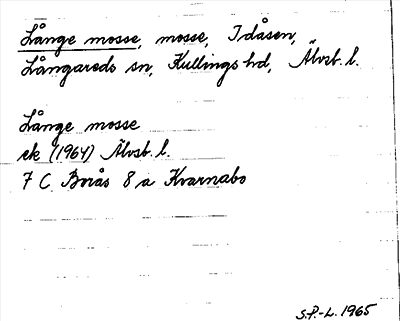 Långe mosse, mosse, Idåsen,
Långareds sn, Kullings hd, Älvsb. l.
Långe mosse
ek (1964) Älvsb. l.
7 C Borås 8 a Kvarnabo
S.P.-L. 1965